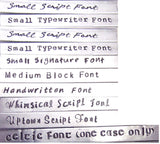 Small Script Font
Small Typewriter Font
Small Script Font
Small Typewriter Font
Small Signature Font
Medium Block Font
Handwritten Font
Whimsical Script Font
Uptown Script Font
celtic font (one case only)